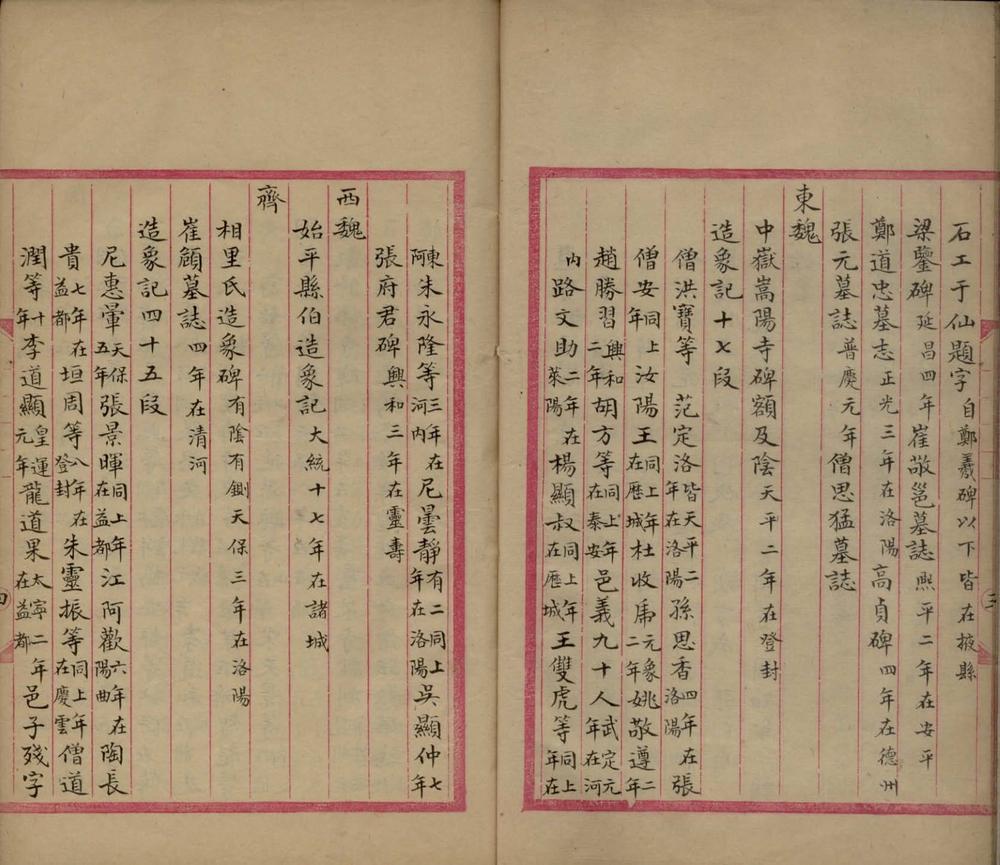 石工于仙題字自鄭羲碑以下皆在掖縣
梁鑒碑延昌四年崔敬邕墓誌熙平二年在安平
鄭道忠墓志正光三年在洛陽高貞碑四年在德州
張元墓誌普慶元年僧思猛墓誌
東魏
中嶽嵩陽寺碑額及陰天平二年在登封
造象記十七段
僧洪寶等范定洛皆天平二年在洛陽孫思香四年在洛陽張
僧安同上年汝陽王同上年在歷城杜收虎元象二年姚敬遵二年
趙勝習興和二年胡方等同上年在泰安邑義九十人武定元年在河
內路文助二年在萊陽楊顯叔同上年在歷城王雙虎等同上年在
東阿陳朱永隆等三年在河內尼曇靜有二同上年在洛陽吳顯仲七年
張府君碑興和三年在靈壽
西魏
始平縣伯造象記大統十七年在諸城
齊
相里氏造象碑有陰有側天保三年在洛陽
崔頠墓誌四年在清河
造象記四十五段
尼惠暈天保五年張景暉同上年在益都江阿歡六年在陽曲陶長
貴七年在益都垣周等八年在登封朱靈振等同上年在慶雲僧道
潤等十年李道顯皇運元年龍道果太寧二年在益都邑子殘字
三
四